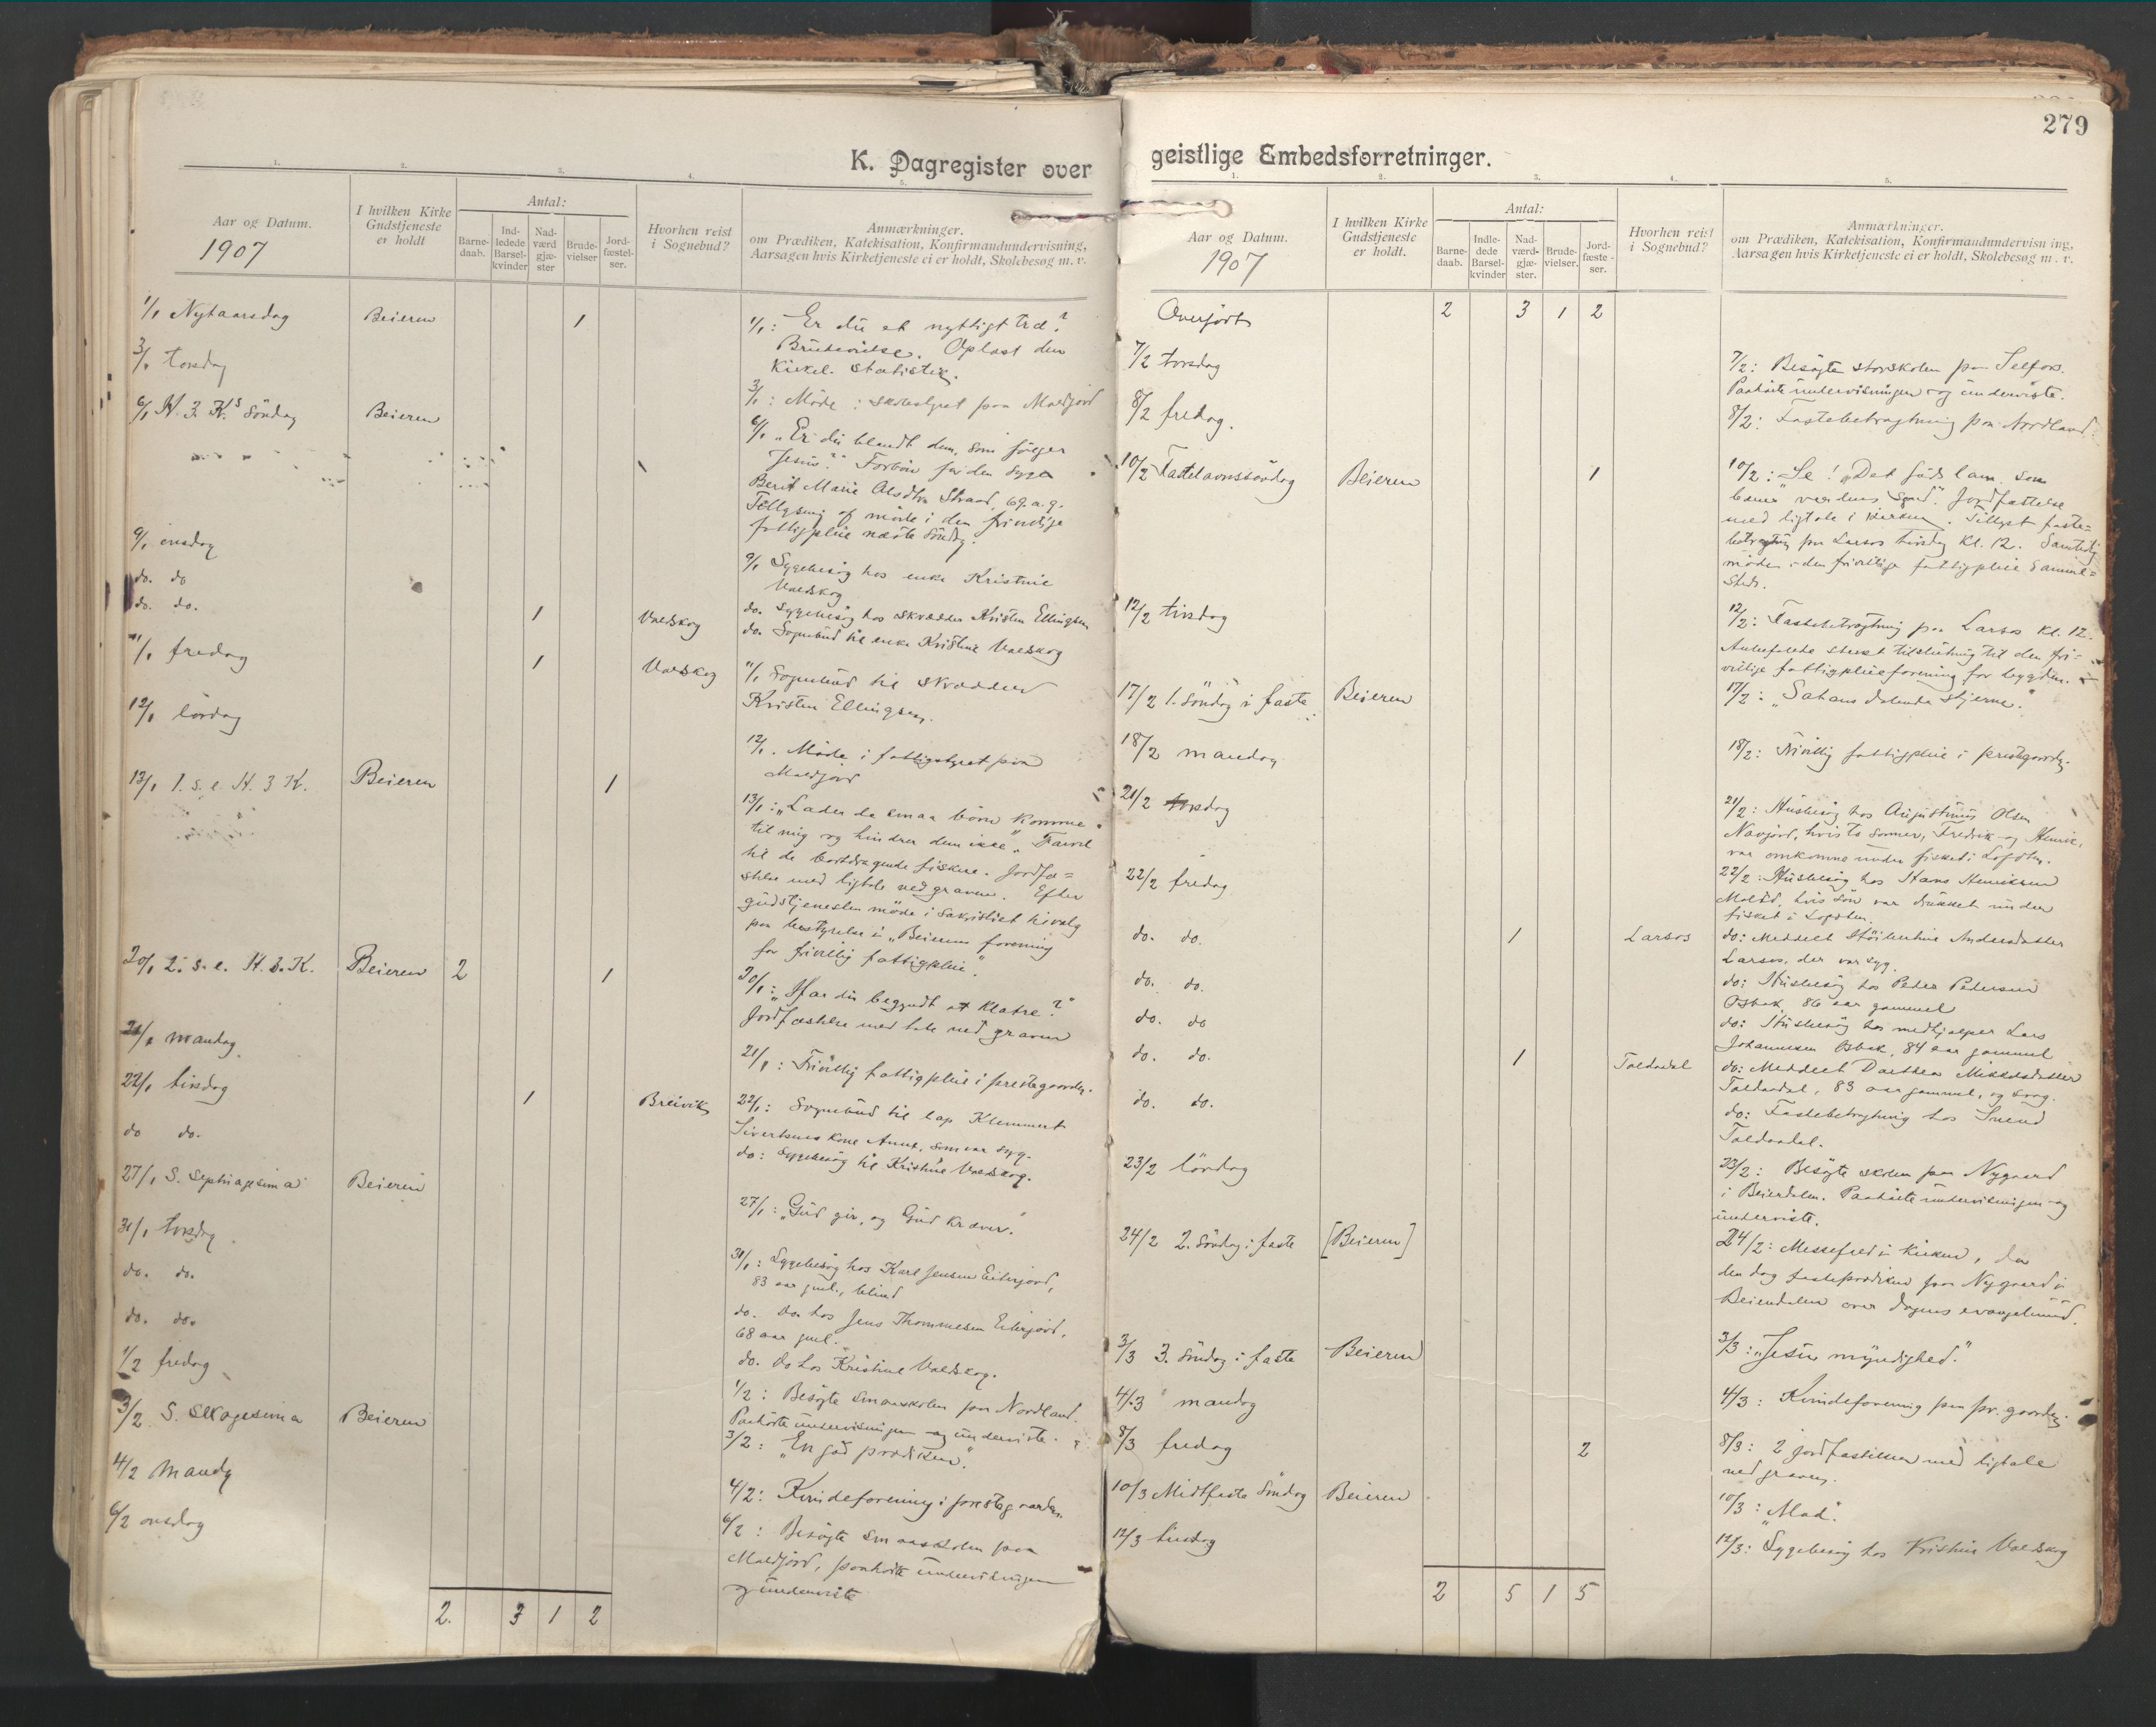 279
K. Dagregister over
Aar og Datum.
1907
I hvilken Kirke
Gudstjeneste
er holdt
Antal:
Barne-
daab.
Ind-
ledede
Barsel-
kvinder
Nad-
værd
gjæ-
ster
Brude-
vielser
Jord-
fæstel-
ser.
Hvorhen reist
i Sognebud?
Anmærkninger.
om Prædiken, Katekisation, Konfirmandundervisning,
Aarsagen hvis Kirketjeneste ei er holdt, Skolebesøg m. v.
1/1 Nytaarsdag Beieren 1
1/1: Er du et nyttigt træ?
Brudevielse. Oplæst den
kirkel. statistik.
3/1 torsdag
3/1: Møde i skolestyret paa Moldjord
6/1 H. 3 K.s Søndag Beieren
6/1 "Er du blandt dem, som følger
Jesus?" Forbøn for den syge
Berit Marie Olsdtr. Strand, 69 a. g.
Tillysning af møde i den frivillige
fattigpleie næste Søndag.
9/1 onsdag
9/1 Sygebesøg hos enke Kristine
Valdskog
do. do
do. Sygebesøg hos skrædder Kristen Ellingsen
do. do. 1 Valdskog
do. Sognebud til enke Kristine Valdskog
11/1 fredag 1 Valdskog
11/1 Sognebud til skrædder
Kristen Ellingsen.
12/1 lørdag
12/1. Møde i fattigstyret paa
Moldjord
13/1 1. s. e. H. 3 K. Beieren 1
13/1: "Lader de smaa børn komme
til mig og hindrer dem ikke". Farvel
til de bortdragende fiskere. Jordfæ=
stelse med ligtale ved graven. Efter
gudstjenesten møde i sakristiet til valg
paa bestyrelse i "Beierens forening
for frivillig fattigpleie".
20/1 2. s. e. H. 3. K. Beieren 2 1
20/1: "Har du begyndt at klatre?"
Jordfæstelse med tale ved graven
21/1 mandag
21/1: Frivillig fattigpleie i prestegaarden.
22/1 tirsdag 1 Breivik
22/1: Sognebud til lap Klemmet
Sivertsens kone Anna, som var syg.
do do.
do: Sygebesøg til Kristine Valdskog.
27/1 S. Septuagesima Beieren
27/1: "Gud gir, og Gud kræver."
31/1 torsdag
31/1: Sygebesøg hos Karl Jensen Eiterjord,
83 aar gml., blind
do. do.
do. Do hos Jens Thommesen Eiterjord,
68 aar gml.
do. do.
do. Do hos Kristine Valdskog.
1/2 fredag
1/2: Besøgte smaaskolen paa Nordland.
Paahørte undervisningen og underviste.
3/2 S. Sexagesima Beieren
3/2: "En god prædiken".
4/2 Mandag
4/2: Kvindeforening i prestegaarden.
6/2 onsdag
6/2: Besøgte smaaskolen paa
Moldjord, paahørte undervisningen
og underviste
2. 3 1 2
geistlige Embedsforretninger.
Aar og Datum.
1907
I hvilken Kirke
Gudstjeneste
er holdt.
Antal:
Barne-
daab.
Indle-
dede
Barsel-
kvinder
Nad-
værd-
gjæ-
ster.
Brude-
vielser.
Jord-
fæste-
ser.
Hvorhen reist
i Sognebud?
Anmærkninger.
om Prædiken, Katekisation, Konfirmandundervisning,
Aarsagen hvis Kirketjeneste ei er holdt, Skolebesøg m. v.
Overført 2 3 1 2
7/2 torsdag
7/2: Besøgte storskolen paa Selfors.
Paahørte undervisningen og underviste.
8/2 fredag.
8/2: Fastebetragtning paa Nordland.
10/2 Fastelavnssøndag Beieren 1
10/2: Se! "Det Guds lam, som
bærer verdens synd". Jordfæstelse
med ligtale i kirken. Tillyst faste=
betragtning paa Larsos tirsdag kl. 12. Samtidig
møde i den frivillige fattigpleie samme=
steds.
12/2 tirsdag
12/2: Fastebetragtning paa Larsos kl. 12.
Anbefalede sterkt tilslutning til den fri=
villige fattigpleieforening for bygden.
17/2 1. Søndag i faste Beieren
17/2: "Satans dalende stjerne."
18/2 mandag
18/2: Frivillig fattigpleie i prestegaarden.
21/2 torsdag
21/2: Husbesøg hos Augustinus Olsen
Navjord, hvis to sønner, Fredrik og Henrik,
var omkomne under fisket i Lofoten.
22/2 fredag
22/2: Husbesøg hos Hans Henriksen
Moldjd, hvis søn var druknet under
fisket i Lofoten.
do. do. 1 Larsos
do: Meddelt Andersdatter
Larsos, der var syg.
do. do.
do: Husbesøg hos Peder Pedersen
Osbak, 86 aar gammel
do. do
do: Husbesøg hos medhjælper Lars
Johannesen Osbak, 84 aar gammel
do. do. 1 Toldaadal
do: Meddelt Dorthea Mikkelsdatter
Toldaadal, 83 aar gammel, og svag.
do. do.
do: Fastebetragtning hos
Toldaadal.
23/2 lørdag
23/2: Besøgte skolen paa Nygaard
i Beierdalen. Paahørte undervisningen og
underviste.
24/2 2. Søndag i faste [Beieren]
24/2: Messefald i kirken, da
den dag fasteprædiken paa Nygaard i
Beierdalen over dagens evangelium.
3/3 3. Søndag i faste Beieren
3/3: "Jesu myndighed."
4/3 mandag
4/3: Kvindeforening paa pr.gaarden.
8/3 fredag 2
8/3: 2 jordfæstelser med ligtale
ved graven.
10/3 Midtfaste Søndag Beieren
10/3: "Mad".
12/3 tirsdag
12/3: Sygebesøg hos Kristine Valdskog
2 5 1 5